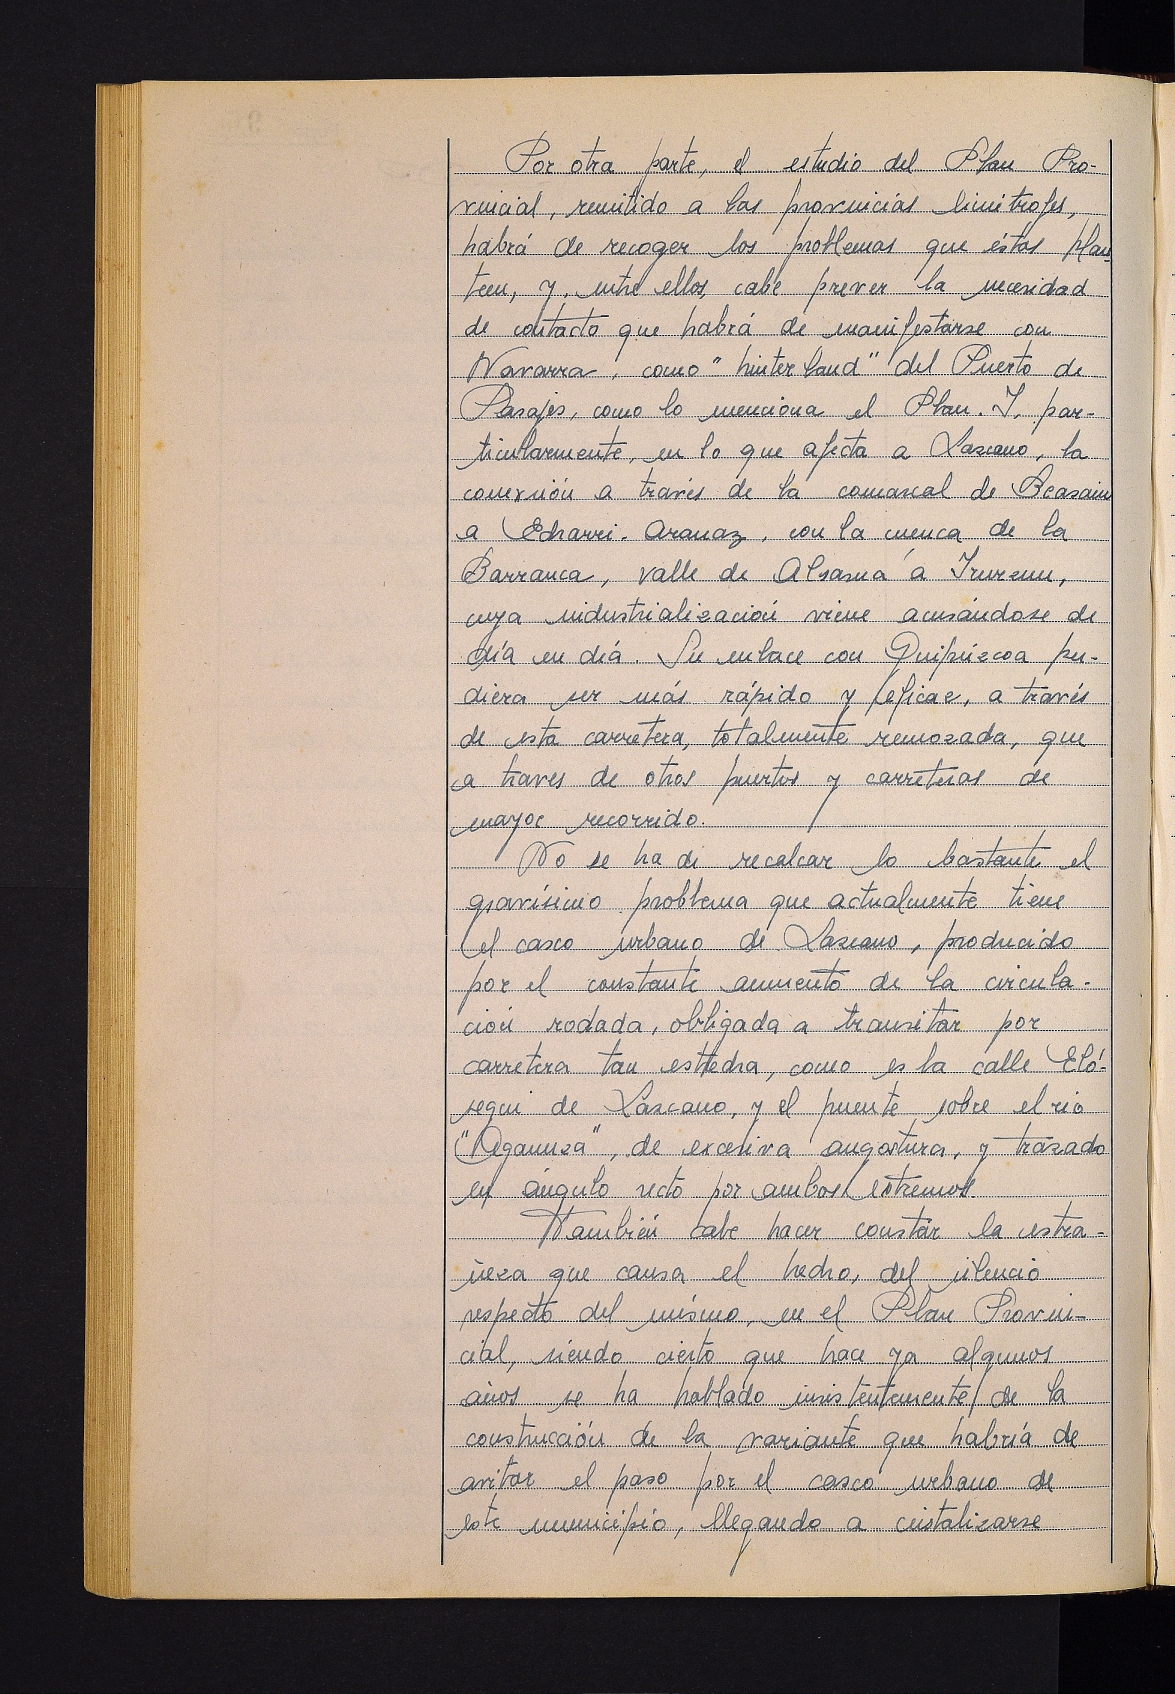 Por otra parte, el estudio del Plan Pro-
vincial, remitido a las provincias limitrofes,
habrá de recoger los problemas que éstas plan-
teen, y, entre ellos, cabe prever la necesidad
de contacto que habrá de manifestarse con
Navarra, como "hinterland" del Puerto de
Pasajes, como lo menciona el Plan. Y, par-
ticularmente, en lo que afecta a Lazcano, la
conexión a través de la comarcal de Beasain
a Echarri-Aranaz, con la cuenca de la
Barranca, valle de Alsasua a Irurzun,
cuya industrialización viene acusándose de
día en día. Su enlace con Guipúzcoa pu-
diera ser más rápido y eficaz, a través
de esta carretera, totalmente remozada, que
a traves de otros puertos y carreteras de
mayor recorrido.
No se ha de recalcar lo bastante el
gravísimo problema que actualmente tiene
el casco urbano de Lazcano, producido
por el constante aumento de la circula-
ción rodada, obligada a transitar por
carretera tan estrecha, como es la calle Eló-
segui de Lazcano, y el puente sobre el rio
"Agaunza", de excesiva angostura, y trazado
en ángulo recto por ambos estremos.
También cabe hacer constar la estra-
ñeza que causa el hecho, del silencio
respecto del mismo, en el Plan Provin-
cial, siendo cierto que hace ya algunos
años se ha hablado insistentemente de la
construcción de la variante que habría de
avitar el paso por el casco urbano de
este municipio, llegando a cristalizarse